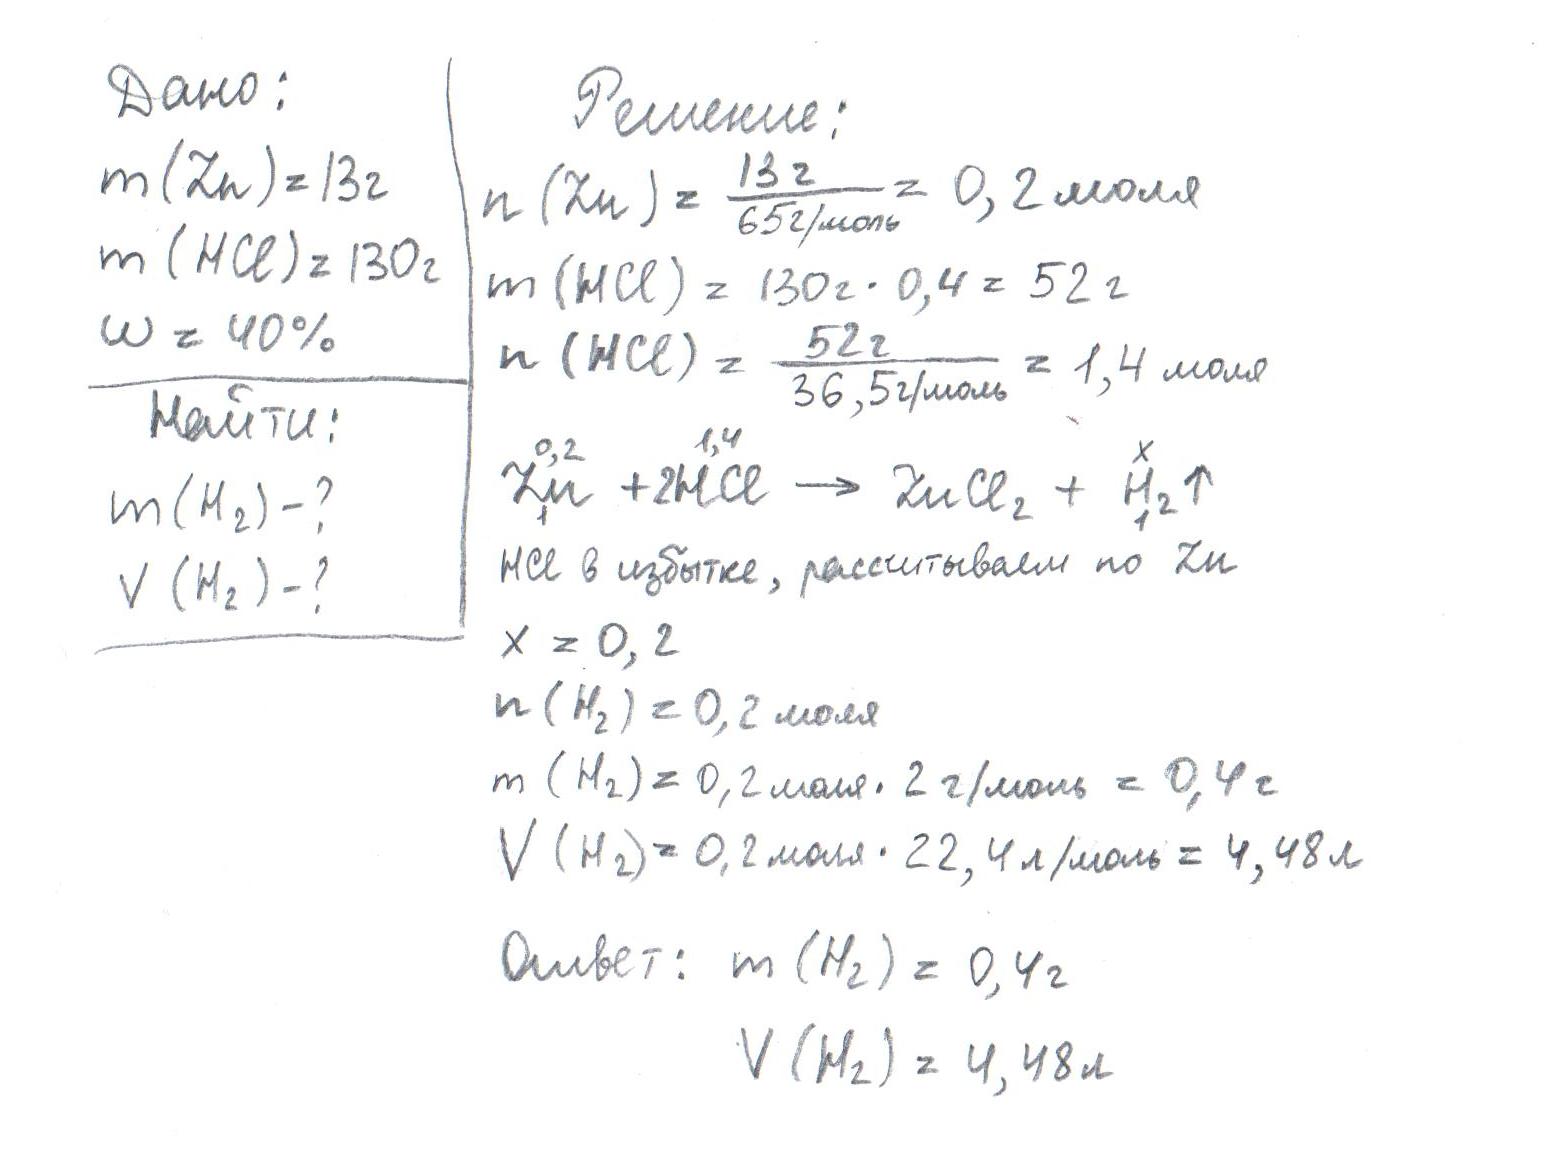 Дано:
m(Zn)=13г
m(HCl)=130г
ω=40%
Найти:
m(H₂)-?
V(H₂)-?
Решение:
n(Zn) = 13г / 65г/моль = 0,2 моля
m(HCl) = 130г · 0,4 = 52г
n(HCl) = 52г / 36,5г/моль = 1,4 моля
0,2 1,4 x
Zn + 2HCl → ZnCl₂ + H₂↑
1 1
HCl в избытке, рассчитываем по Zn
x = 0,2
n(H₂) = 0,2 моля
m(H₂) = 0,2 моля · 2 г/моль = 0,4г
V(H₂) = 0,2 моля · 22,4 л/моль = 4,48л
Ответ: m(H₂) = 0,4г
V(H₂) = 4,48л